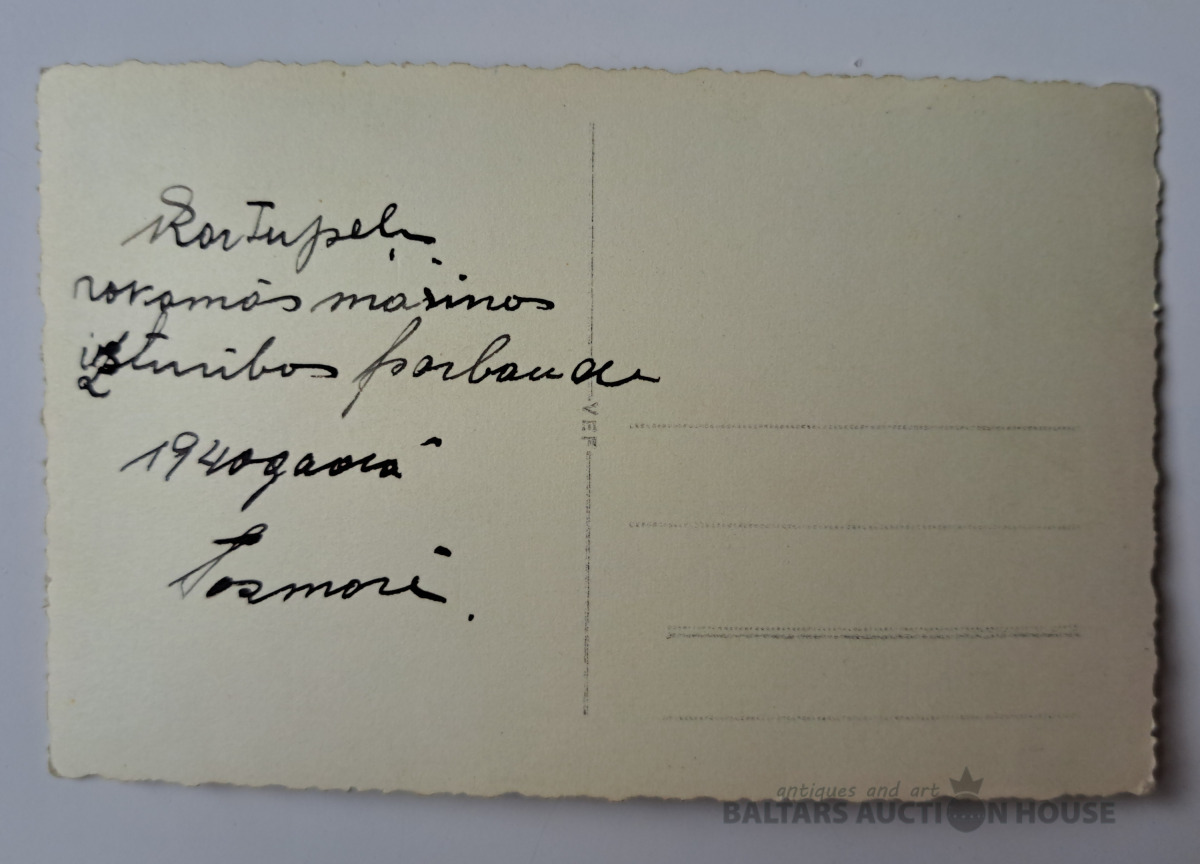 Kartupeļu
rokamās mašīnas
izturības pārbaude
1940 gadā
Tosmarē.
VEF
antiques and art
BALTARS AUCTION HOUSE